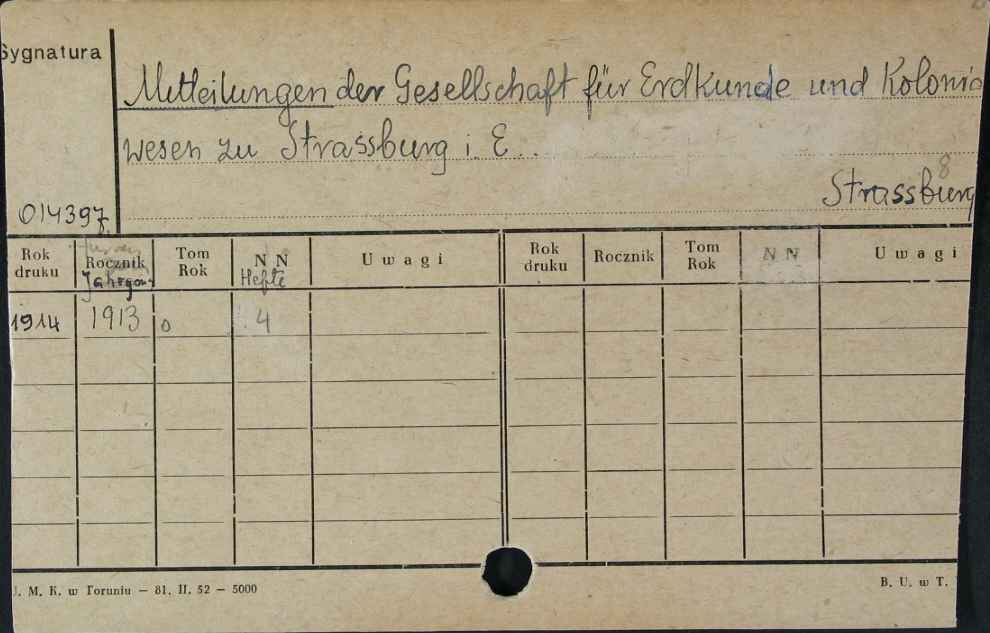 Sygnatura
Mitteilungen der Gesellschaft für Erdkunde und Kolonia
wesen zu Strassburg i. E...
8
Strassburg
014397.
Rok druku Rocznik Tom Rok N N Uwagi Rok druku Rocznik Tom Rok N N Uwagi
Jahrgang Hefte
1914 1913 0 4
U. M. K. w Toruniu — 81. II. 52 — 5000 B. U. w T.